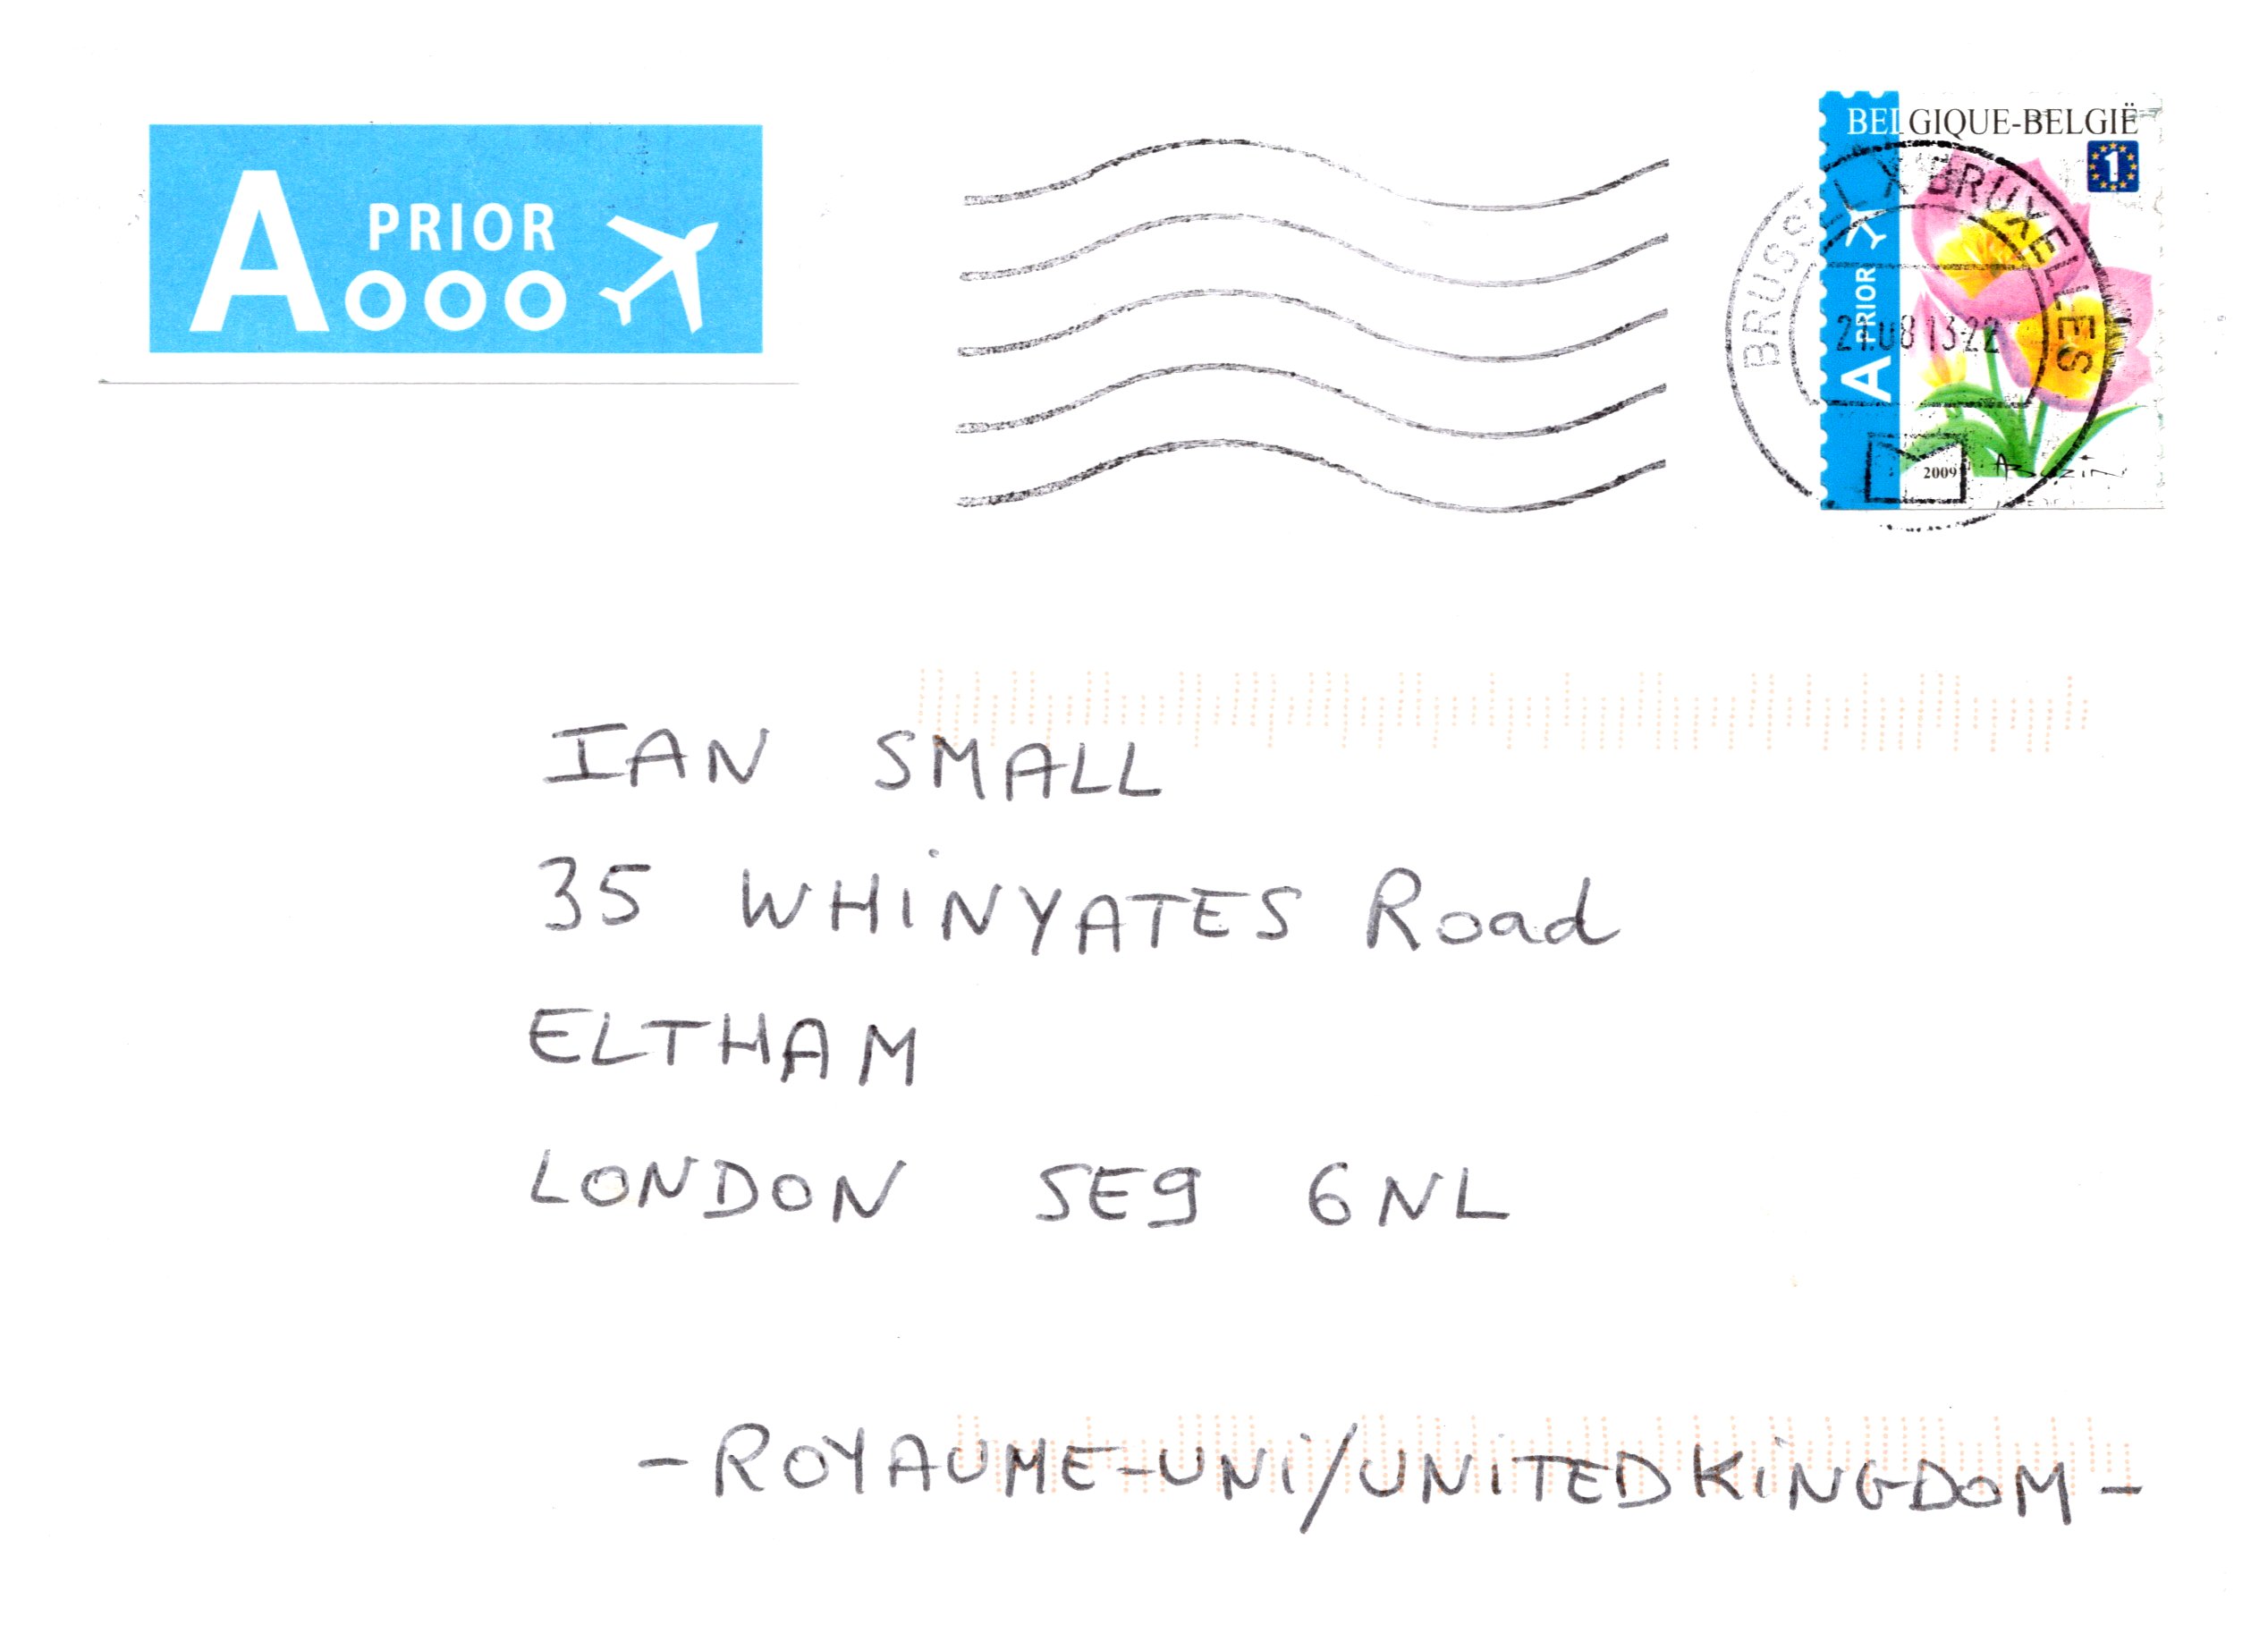 A PRIOR
BELGIQUE-BELGIË
1
BRUSSEL X BRUXELLES
A PRIOR
21.08 13-22
2009
IAN SMALL
35 WHiNYATES Road
ELTHAM
LONDON SE9 6NL
-ROYAUME-UNi/UNiTED KiNGDOM-